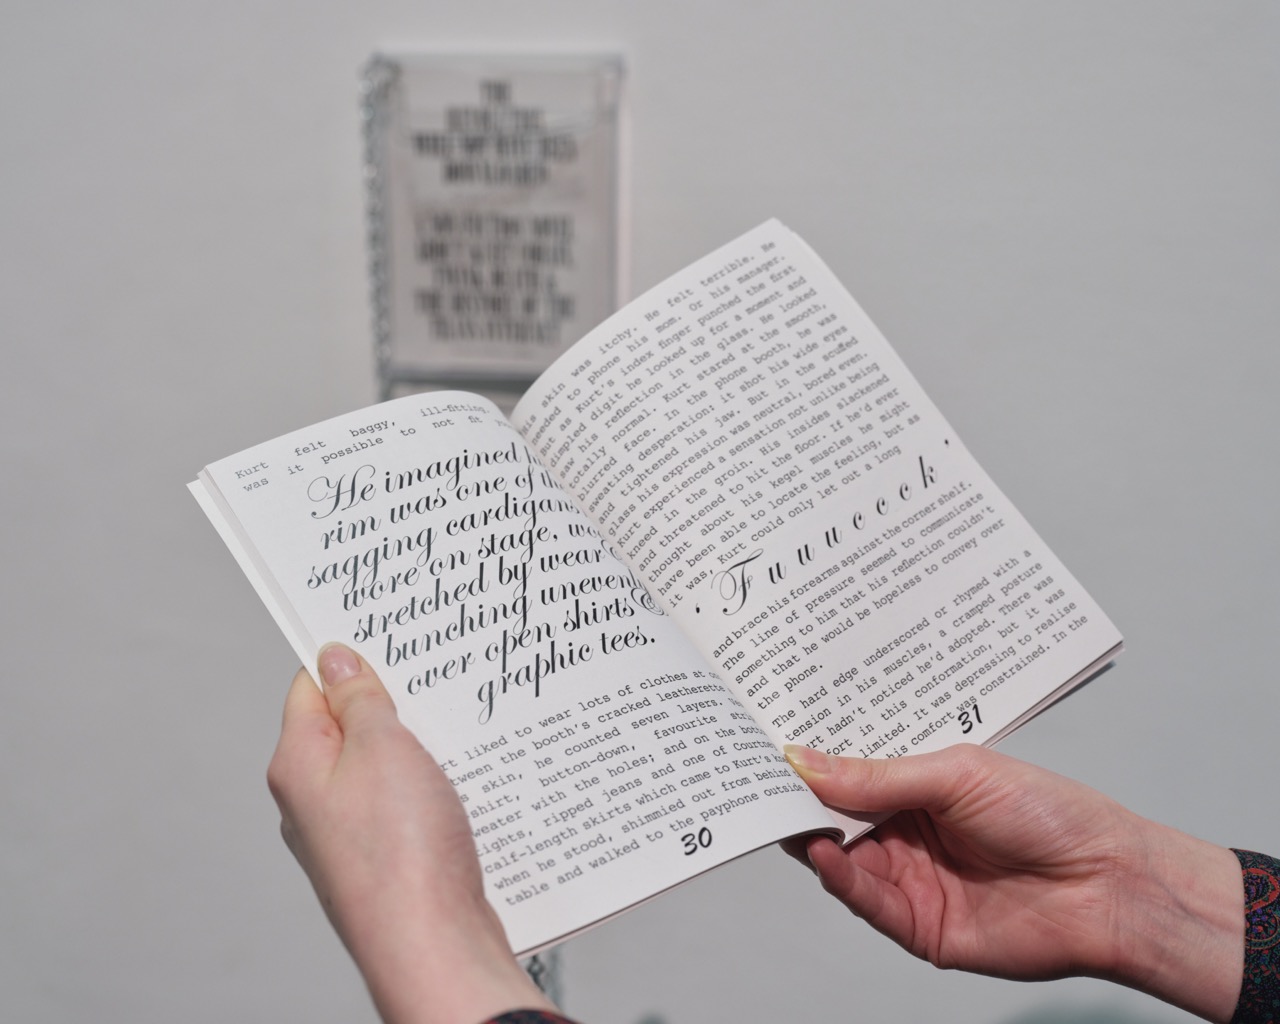 Kurt felt baggy, ill-fitting.
was it possible to not fit
He imagined
rim was one of the
sagging cardigans
wore on stage,
stretched by wear
bunching unevenly
over open shirts &
graphic tees.
liked to wear lots of clothes at
the booth's cracked leatherette
skin, he counted seven layers.
button-down, favourite
with the holes; and on the
tights, ripped jeans and one of
calf-length skirts which came to Kurt's
when he stood, shimmied out from behind
table and walked to the payphone outside.
30
His skin was itchy. He felt terrible. He
needed to phone his mom. Or his manager.
But as Kurt's index finger punched the first
dimpled digit he looked up for a moment and
saw his reflection in the glass. He looked
totally normal. Kurt stared at the smooth,
blurred face. In the phone booth, he was
sweating desperation: it shot his wide eyes
and tightened his jaw. But in the scuffed
glass his expression was neutral, bored even.
Kurt experienced a sensation not unlike being
kneed in the groin. His insides slackened
and threatened to hit the floor. If he'd ever
thought about his kegel muscles he might
have been able to locate the feeling, but as
it was, Kurt could only let out a long
'F u u u c c c k'
and brace his forearms against the corner shelf.
The line of pressure seemed to communicate
something to him that his reflection couldn't
and that he would be hopeless to convey over
the phone.
The hard edge underscored or rhymed with a
tension in his muscles, a cramped posture
hadn't noticed he'd adopted. There was
in this conformation, but it was
limited. It was depressing to realise
his comfort was constrained. In the
31